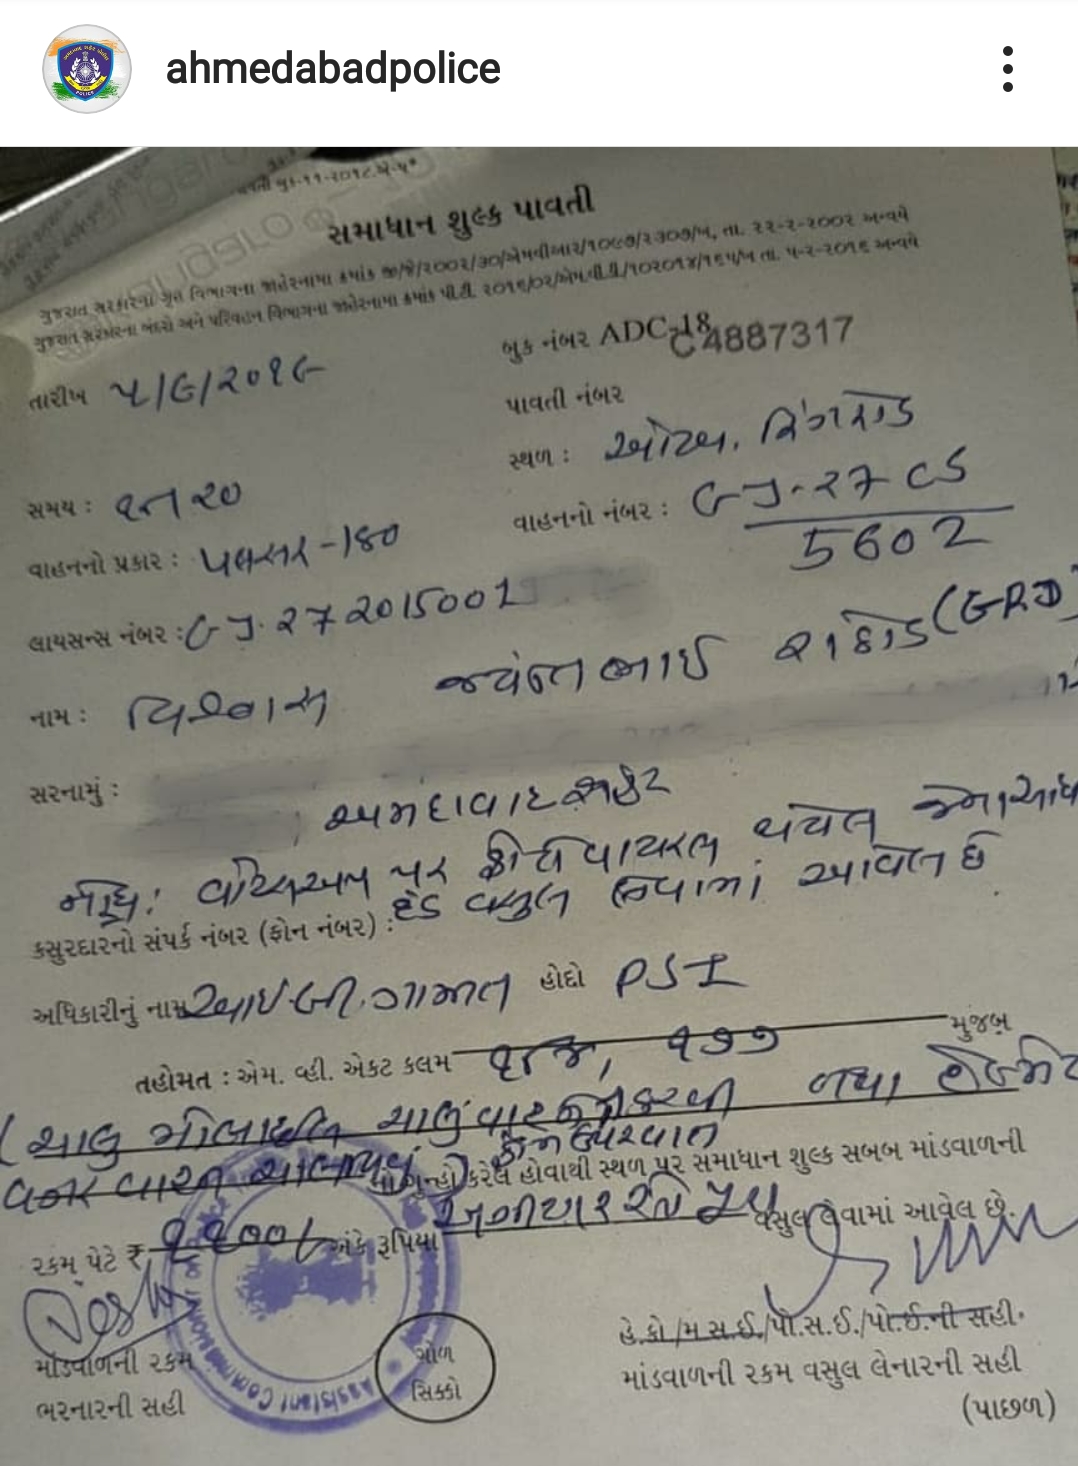 ahmedabadpolice
સમાધાન શુલ્ક પાવતી
ગુજરાત સરકારના ગૃહ વિભાગના જાહેરનામા ક્રમાંક જી/જે/૨૦૦૨/૩૦/એમવીઆર/૧૦૯૭/૨૩૦૭/ખ, તા. ૨૨-૨-૨૦૦૨ અન્વયે
ગુજરાત સરકારના બંદરો અને પરિવહન વિભાગના જાહેરનામા ક્રમાંક પી.ટી. ૨૦૧૬/૦૨/એમ.વી.ડી./૧૦૨૦૧૪/૧૬૫/ખ તા. ૫-૨-૨૦૧૬ અન્વયે
બુક નંબર ADC-18 C4887317
તારીખ ૫/૯/૨૦૧૯
પાવતી નંબર
સ્થળ : ઓઢવ, રિંગરોડ
સમય : ૨૦
વાહનનો નંબર : GJ-27 CS 5602
વાહનનો પ્રકાર : પલ્સર-180
લાયસન્સ નંબર : GJ.27 2015001
નામ : વિશ્વાસ જયંતભાઈ રાઠોડ (GRD)
સરનામું :
અમદાવાદ શહેર
નોંધ: પર થયેલ
કસુરદારનો સંપર્ક નંબર (ફોન નંબર) : દંડ વસુલ લેવામાં આવેલ છે
અધિકારીનું નામ આઈ.બી. ગામીત હોદ્દો PSI
તહોમત : એમ. વ્હી. એક્ટ કલમ ૧૮૪, ૧૭૭ મુજબ
( ચાલુ ચાલુ તથા હેલ્મેટ
વગર વાહન ચલાવવું ) નો ગુન્હો કરેલ હોવાથી સ્થળ પર સમાધાન શુલ્ક સબબ માંડવાળની
રકમ પેટે ₹ ૧૧૦૦/- અંકે રૂપિયા અગીયાર સો પુરા વસુલ લેવામાં આવેલ છે.
હે.કો./મ.સ.ઈ./પો.સ.ઈ./પો.ઈ.ની સહી.
માંડવાળની રકમ
ભરનારની સહી
ગોળ
સિક્કો
માંડવાળની રકમ વસુલ લેનારની સહી
(પાછળ)